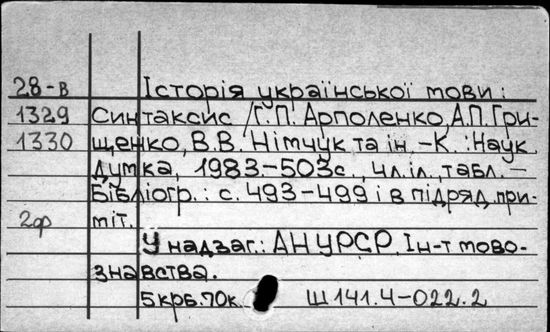 28-в Історія української мови:
1329 Синтаксис /Г.П. Арполенко, А.П. Гри-
1330 щенко, В.В. Німчук та ін.-К.: Наук.
думка, 1983.-503с., 4л.іл., табл.-
Бібліогр.: с. 493-499 і в підряд. при-
2ф міт.
У надзаг.: АН УРСР. Ін-т мово-
знавства.
5крб.70к. Ш141.4-022.2